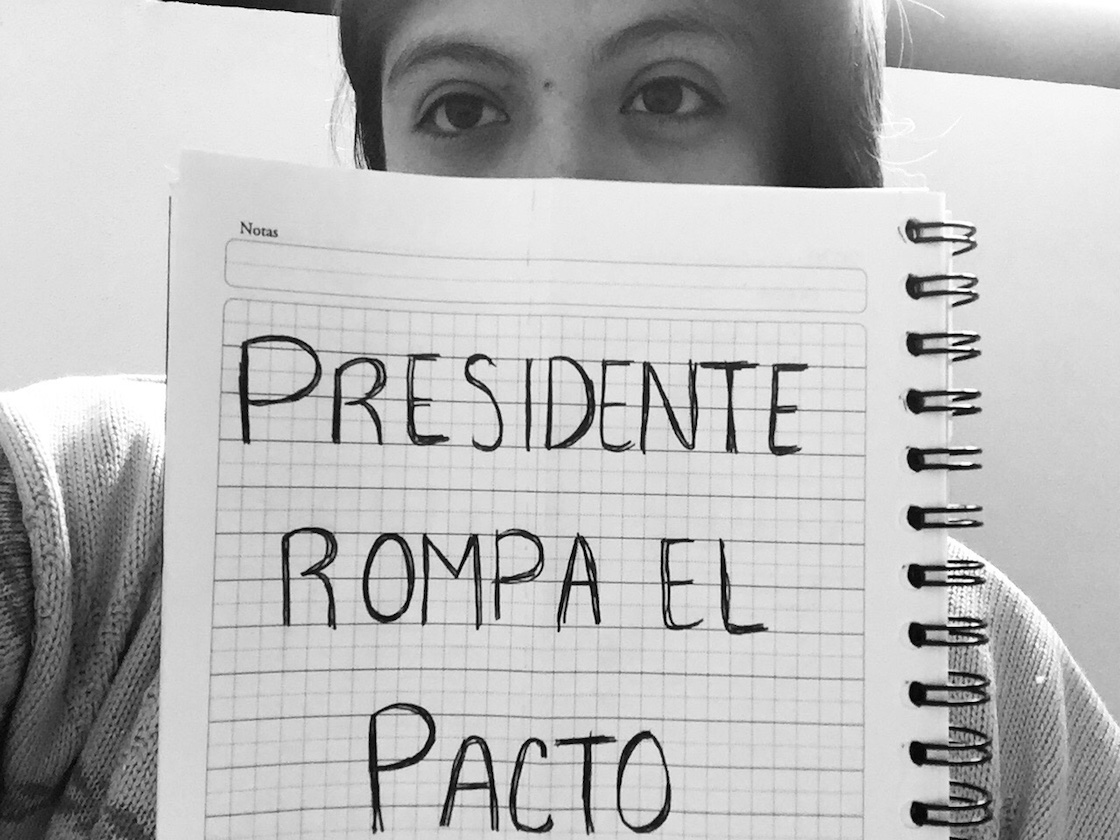 Notas
PRESIDENTE
ROMPA EL
PACTO